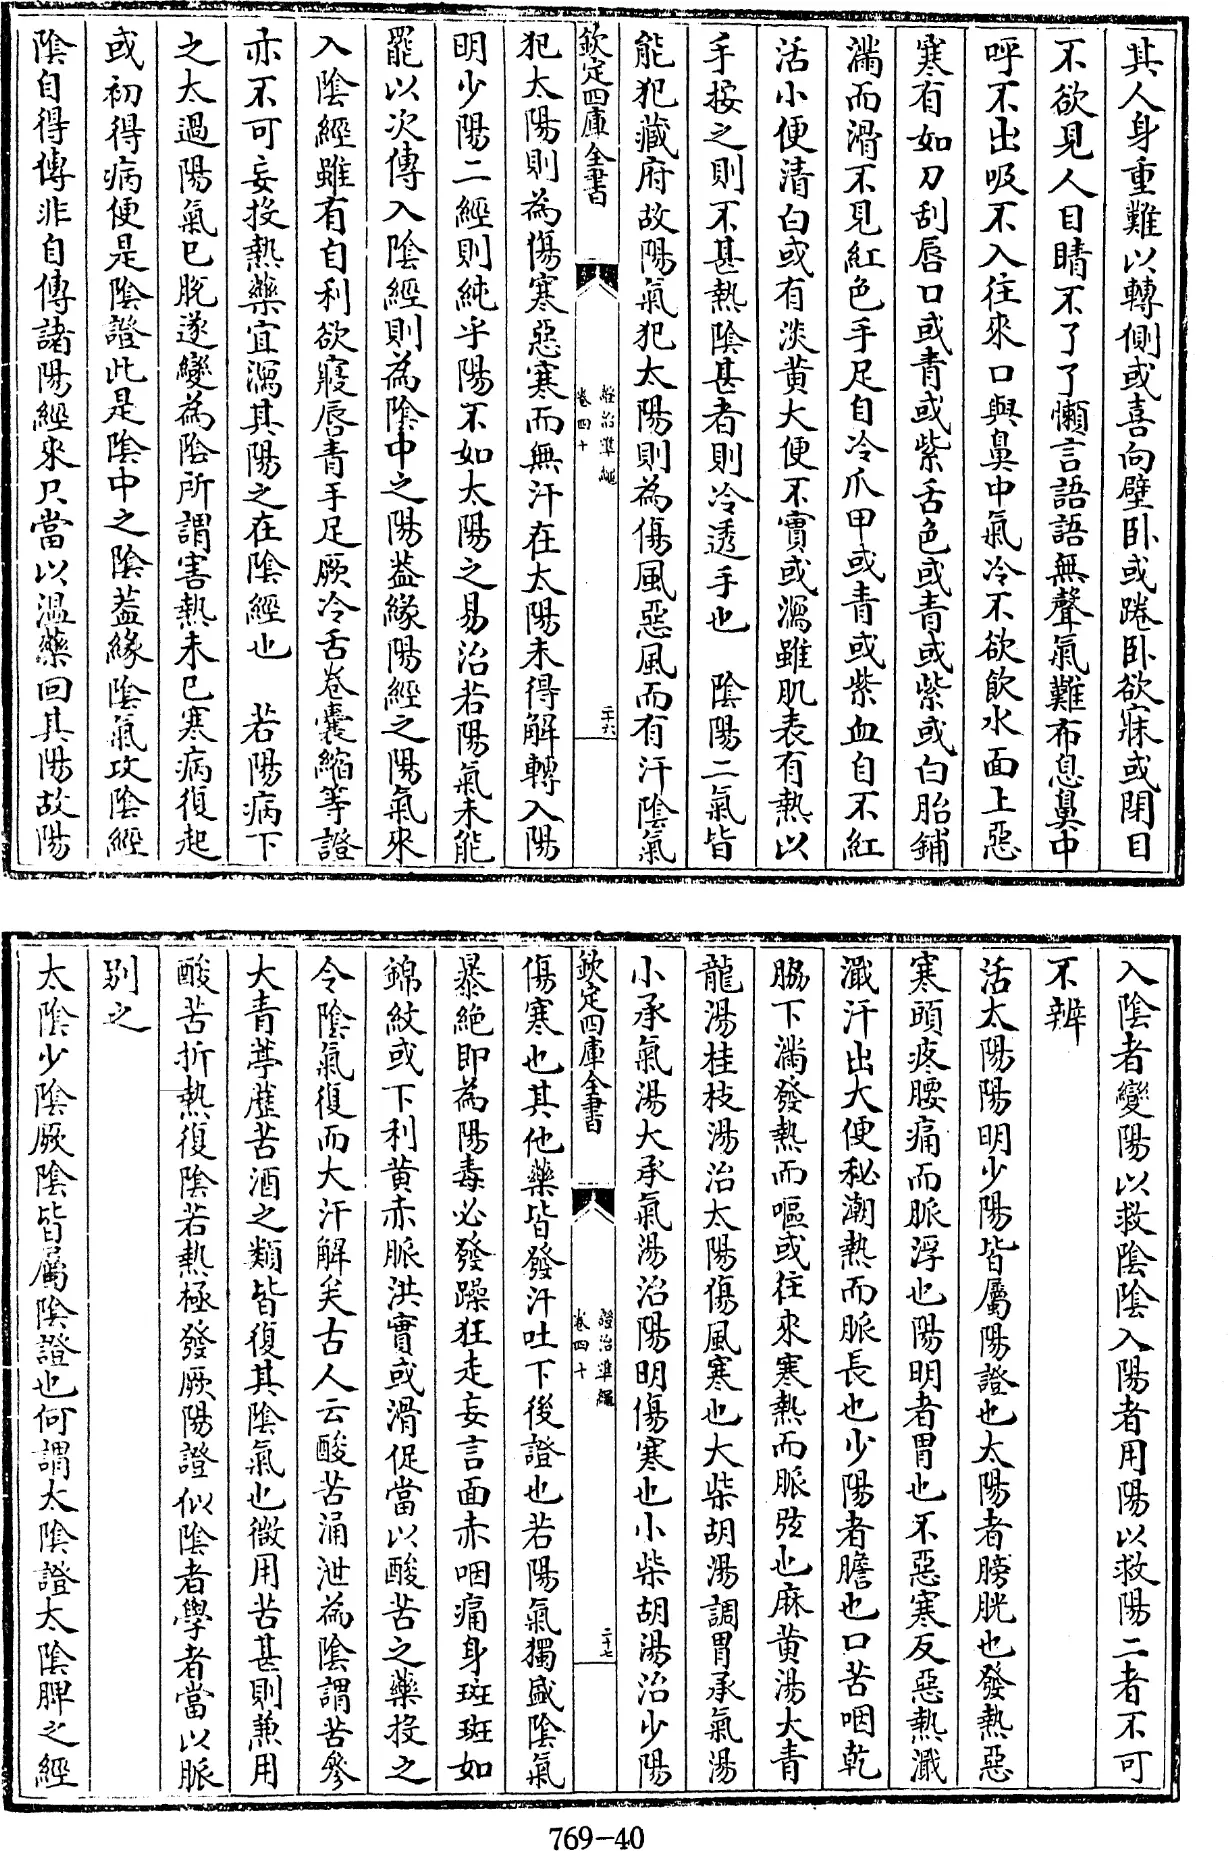 其人身重難以轉側或喜向壁卧或踡卧欲寐或閉目
不欲見人目睛不了了懶言語語無聲氣難布息鼻中
呼不出吸不入往來口與鼻中氣冷不欲飲水面上惡
寒有如刀刮唇口或青或紫舌色或青或紫或白胎鋪
滿而滑不見紅色手足自冷爪甲或青或紫血自不紅
活小便清白或有淡黄大便不實或瀉雖肌表有熱以
手按之則不甚熱陰甚者則冷透手也　陰陽二氣皆
能犯藏府故陽氣犯太陽則為傷風惡風而有汗陰氣
欽定四庫全書
證治準繩
卷四十
二十六
犯太陽則為傷寒惡寒而無汗在太陽未得解轉入陽
明少陽二經則純乎陽不如太陽之易治若陽氣未能
罷以次傳入陰經則為陰中之陽葢緣陽經之陽氣來
入陰經雖有自利欲寢唇青手足厥冷舌卷囊縮等證
亦不可妄投熱藥宜瀉其陽之在陰經也　若陽病下
之太過陽氣已脱遂變為陰所謂害熱未已寒病復起
或初得病便是陰證此是陰中之陰葢緣陰氣攻陰經
陰自得傳非自傳諸陽經來只當以温藥回其陽故陽
入陰者變陽以救陰陰入陽者用陽以救陽二者不可
不辨
活太陽陽明少陽皆屬陽證也太陽者膀胱也發熱惡
寒頭疼腰痛而脈浮也陽明者胃也不惡寒反惡熱濈
濈汗出大便秘潮熱而脈長也少陽者膽也口苦咽乾
脇下滿發熱而嘔或往來寒熱而脈弦也麻黄湯大青
龍湯桂枝湯治太陽傷風寒也大柴胡湯調胃承氣湯
小承氣湯大承氣湯治陽明傷寒也小柴胡湯治少陽
欽定四庫全書
證治準繩
卷四十
二十七
傷寒也其他藥皆發汗吐下後證也若陽氣獨盛陰氣
暴絶即為陽毒必發躁狂走妄言面赤咽痛身斑斑如
錦紋或下利黄赤脈洪實或滑促當以酸苦之藥投之
令陰氣復而大汗解矣古人云酸苦涌泄為陰謂苦參
大青葶藶苦酒之類皆復其陰氣也微用苦甚則兼用
酸苦折熱復陰若熱極發厥陽證似陰者學者當以脈
别之
太陰少陰厥陰皆屬陰證也何謂太陰證太陰脾之經
769-40